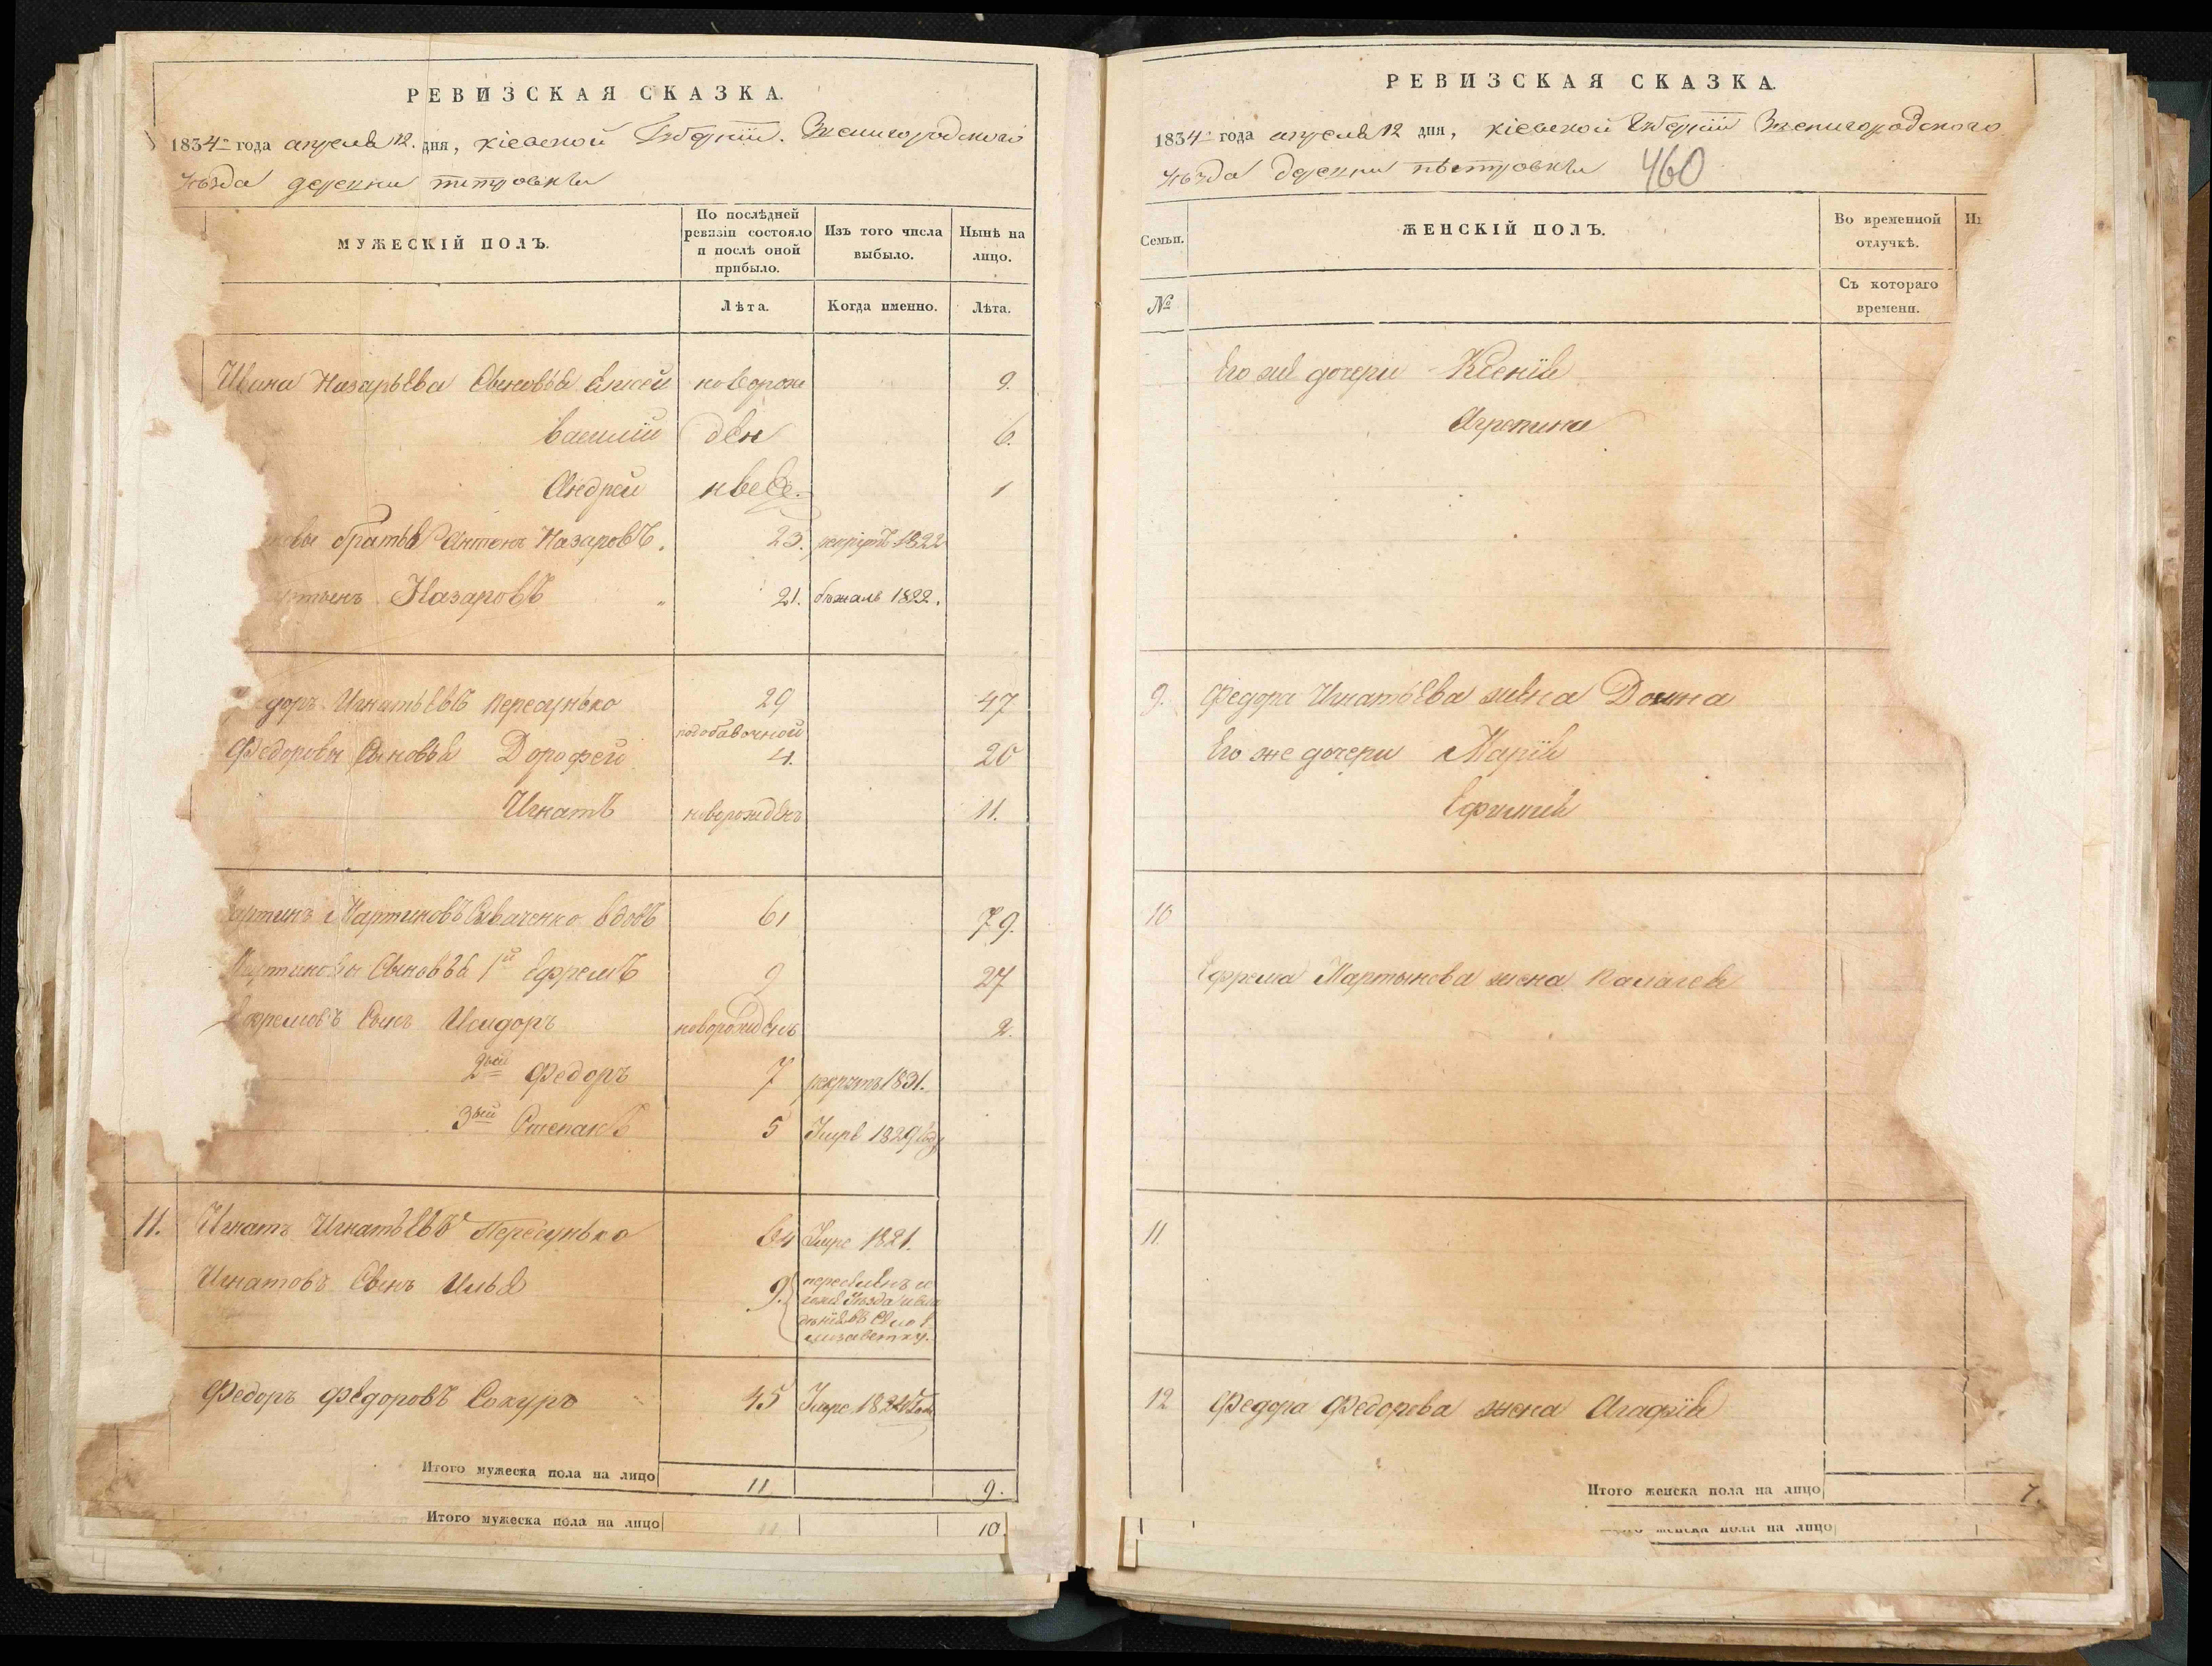 РЕВИЗСКАЯ СКАЗКА.
1834 года апреля 12. дня, Кіевской Губерніи. Звенигородского
уезда деревни Петровки
МУЖЕСКІЙ ПОЛЪ.
По послѣдней ревизіи состояло и послѣ оной прибыло.
Изъ того числа выбыло.
Нынѣ на лицо.
Лѣта.
Когда именно.
Лѣта.
Назарьева Сыновья новорож 9.
василій ден 6.
Андрей 1
братья Антонъ Назаровъ. 23. 1822
Назаровъ 21. бѣжалъ 1822.
доръ Игнатьевъ Пересунько 29 47
Федоровы Сыновья Дорофей 4. 20
Игнатъ новорожденъ 11.
Мартиновъ вдовъ 61 79.
Сыновья 1й Ефремъ 9 27
Сынъ Исидоръ новорожденъ 2.
2ой Федоръ 7 рекрутъ 1831.
3ий Степанъ 5 Умре 1829
11. Игнатъ Игнатьевъ Пересунько 64 Умре 1821.
Игнатовъ Сынъ Илья 9.
Федоръ Федоровъ Сокуръ 45 Умре
Итого мужеска пола на лицо 11 9.
Итого мужеска пола на лицо 11 10.
РЕВИЗСКАЯ СКАЗКА.
1834 года апреля 12 дня, Кіевской Губерніи Звенигородского
уѣзда деревни Петровки 460
Семьи.
ЖЕНСКІЙ ПОЛЪ.
Во временной отлучкѣ.
№
Съ котораго времени.
Его же дочери Ксенія
Агрепина
9. Федора Игнатьева жена Домна
Его же дочери Марія
Ефимія
10
Ефрема Мартынова жена Палагея
11.
12 Федора Федорова жена Агафія
Итого женска пола на лицо 7.
женска пола на лицо